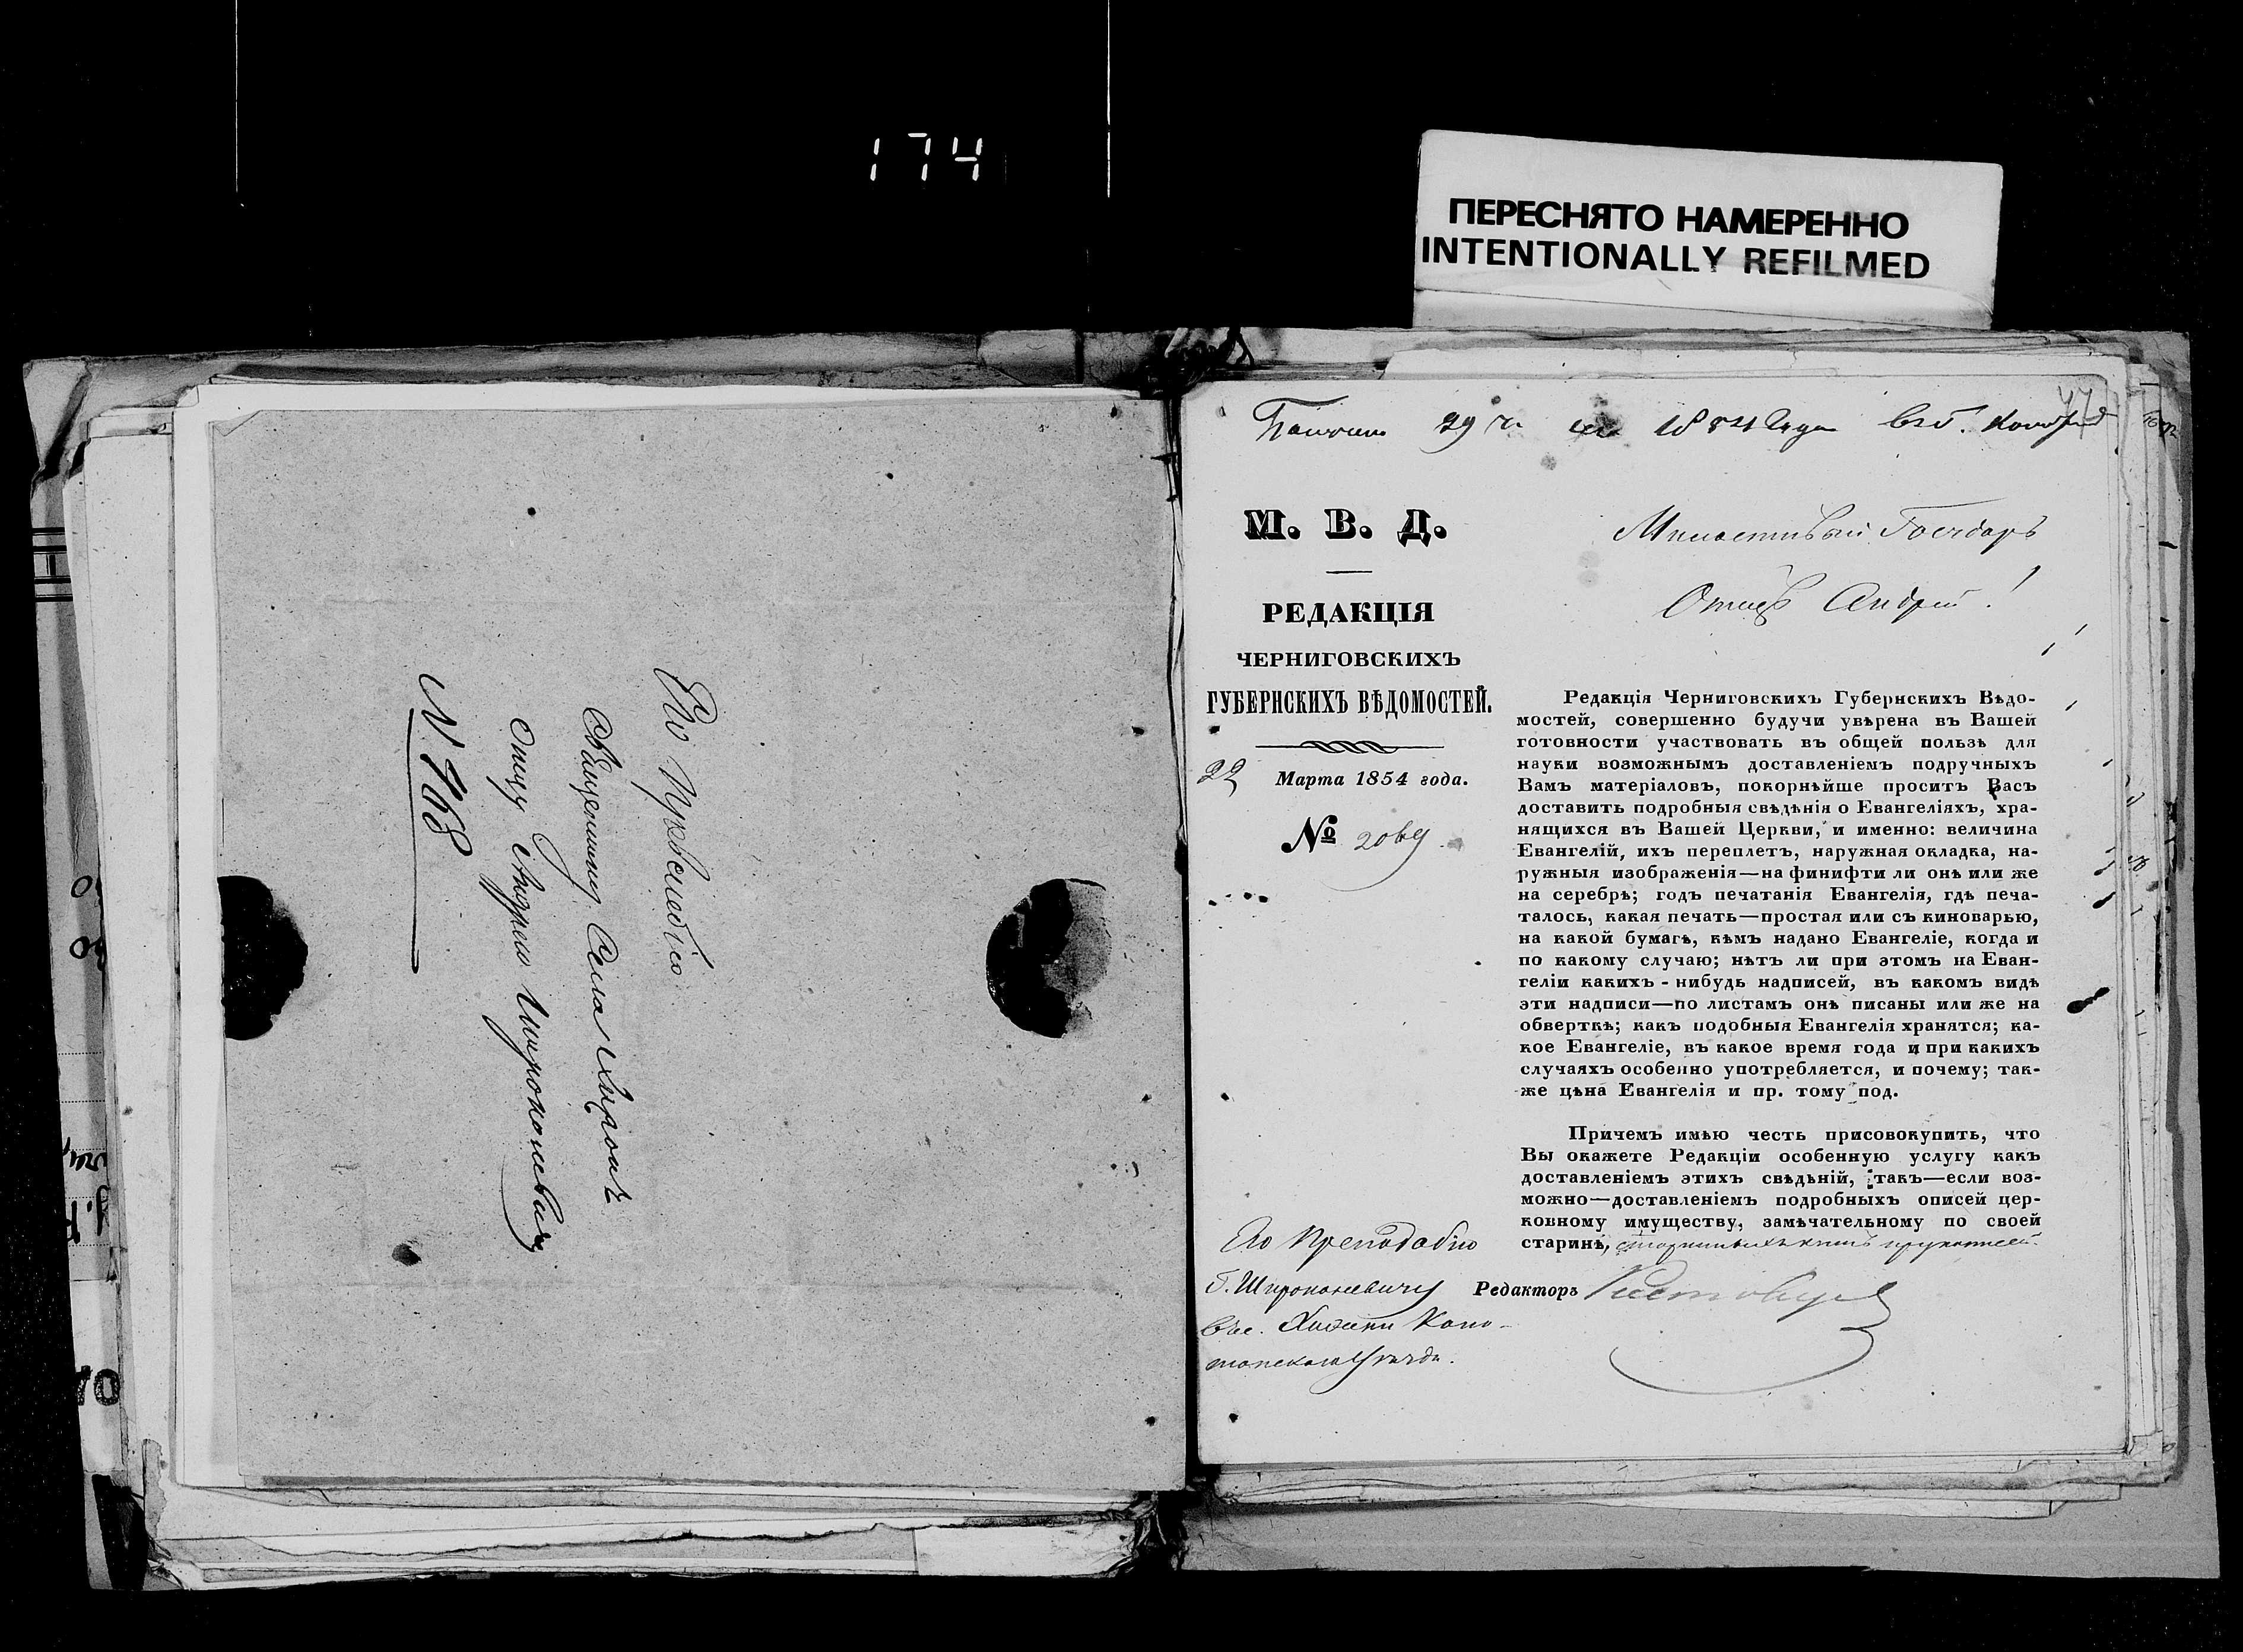 174
ПЕРЕСНЯТО НАМЕРЕННО
INTENTIONALLY REFILMED
Его
Священнику Села
Отцу Андрею Широконевичу
N. 768
1854 года
М. В. Д.
РЕДАКЦІЯ
ЧЕРНИГОВСКИХЪ
ГУБЕРНСКИХЪ ВѢДОМОСТЕЙ.
22 Марта 1854 года.
№ 2069
Милостивый Государь
Отецъ Андрей!
Редакція Черниговскихъ Губернскихъ Вѣдо-
мостей, совершенно будучи увѣрена въ Вашей
готовности участвовать въ общей пользѣ для
науки возможнымъ доставленіемъ подручныхъ
Вамъ матеріаловъ, покорнѣйше проситъ Васъ
доставить подробныя свѣдѣнія о Евангеліяхъ, хра-
нящихся въ Вашей Церкви, и именно: величина
Евангелій, ихъ переплетъ, наружная окладка, на-
ружныя изображенія—на финифти ли онѣ или же
на серебрѣ; годъ печатанія Евангелія, гдѣ печа-
талось, какая печать—простая или съ киноварью,
на какой бумагѣ, кѣмъ надано Евангеліе, когда и
по какому случаю; нѣтъ ли при этомъ на Еван-
геліи какихъ - нибудь надписей, въ какомъ видѣ
эти надписи—по листамъ онѣ писаны или же на
оберткѣ; какъ подобныя Евангелія хранятся; ка-
кое Евангеліе, въ какое время года и при какихъ
случаяхъ особенно употребляется, и почему; так-
же цѣна Евангелія и пр. тому под.
Причемъ имѣю честь присовокупить, что
Вы окажете Редакціи особенную услугу какъ
доставленіемъ этихъ свѣдѣній, такъ—если воз-
можно—доставленіемъ подробныхъ описей цер-
ковному имуществу, замѣчательному по своей
старинѣ,
Редакторъ
Его Преподобію
Г. Широконевичу
въ с. Хижки Коно-
топскаго Уѣзда.